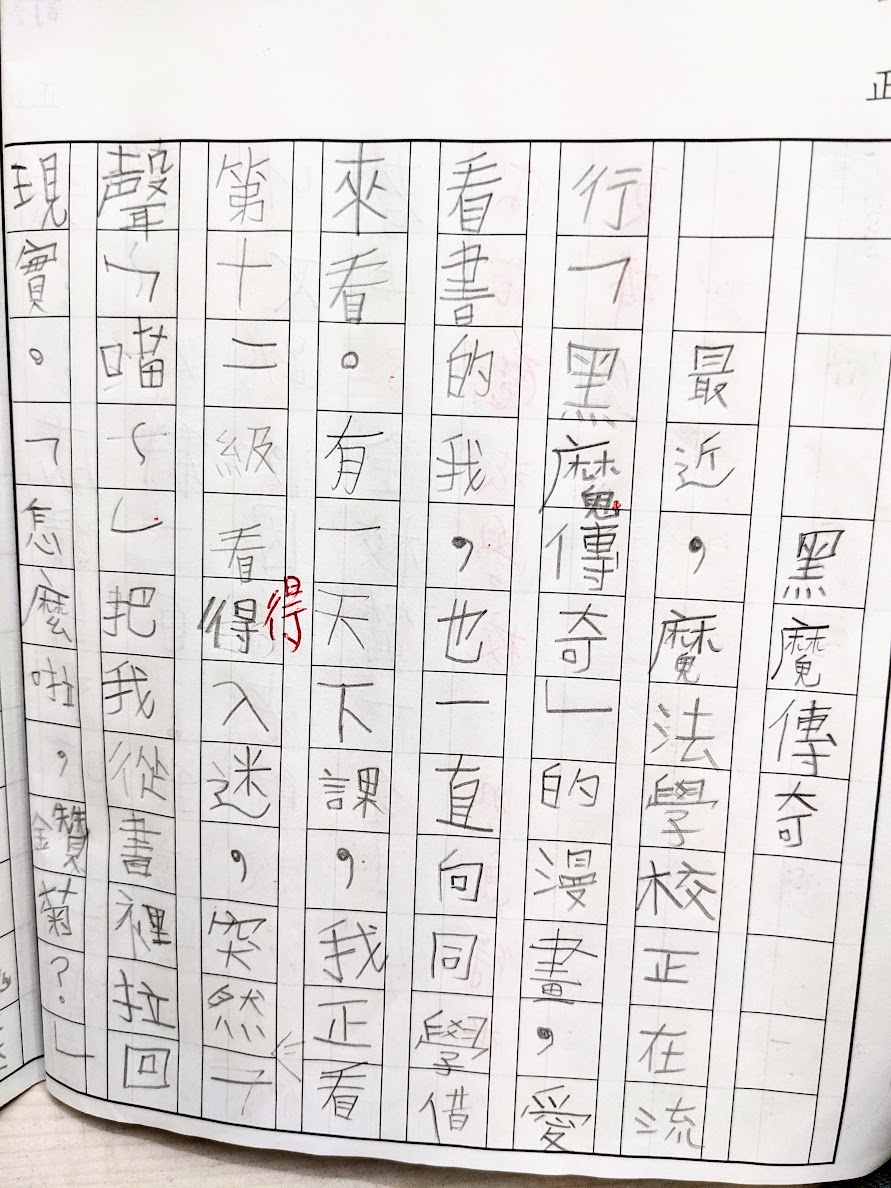 正
黑魔傳奇
最近，魔法學校正在流
行「黑魔傳奇」的漫畫，愛
看書的我，也一直向同學借
來看。有一天下課，我正看
第十二級看得入迷，突然一
得
聲「喵~」把我從書裡拉回
現實。「怎麼啦，鑽菊？」